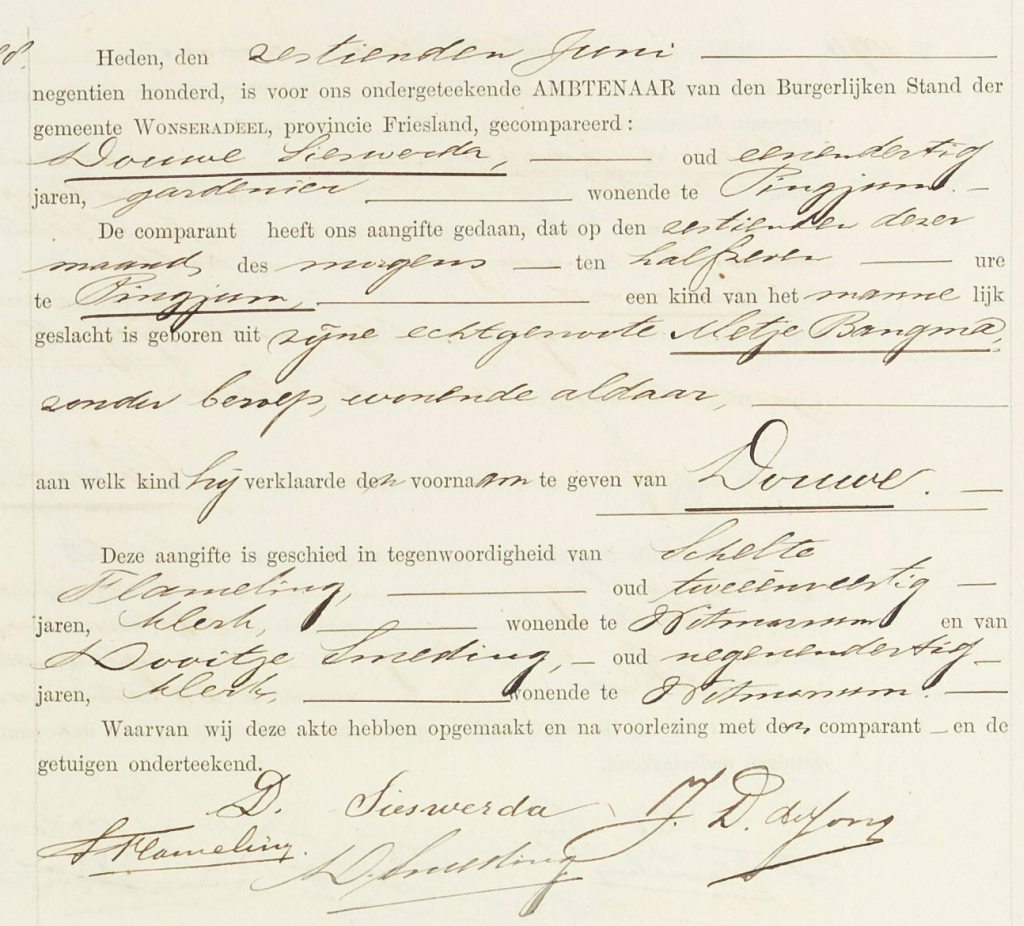 Heden, den zestienden Juni
negentien honderd, is voor ons ondergeteekende AMBTENAAR van den Burgerlijken Stand der
gemeente WONSERADEEL, provincie Friesland, gecompareerd:
Douwe Sieswerda, oud eenendertig
jaren, gardenier wonende te Pingjum.
De comparant heeft ons aangifte gedaan, dat op den zestienden dezer
maand, des morgens ten halfzeven ure
te Pingjum, een kind van het mannelijk
geslacht is geboren uit zijne echtgenoote Metje Bangma,
zonder beroep, wonende aldaar,
aan welk kind hij verklaarde den voornaam te geven van Douwe.
Deze aangifte is geschied in tegenwoordigheid van Schelte
Flameling, oud tweeënveertig
jaren, klerk, wonende te Witmarsum en van
Dooitze Smeding, oud negenendertig
jaren, klerk, wonende te Witmarsum.
Waarvan wij deze akte hebben opgemaakt en na voorlezing met den comparant en de
getuigen onderteekend.
D. Sieswerda J. D. de Jong
S Flameling.
D. Smeding